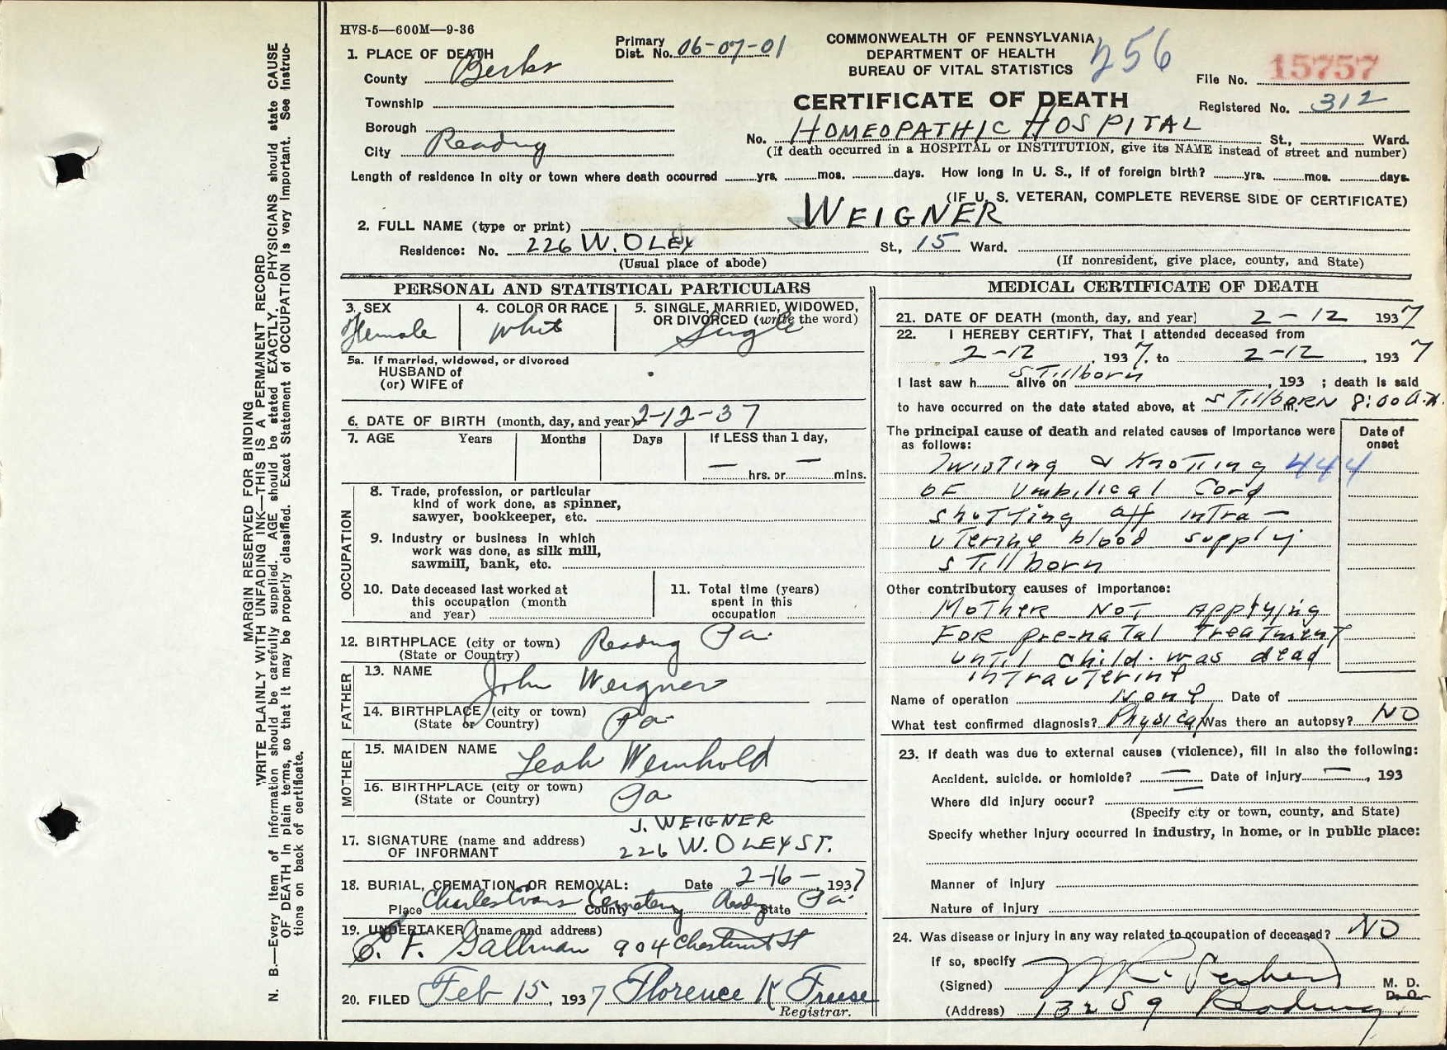 HVS-5—600M—9-36
COMMONWEALTH OF PENNSYLVANIA
DEPARTMENT OF HEALTH
BUREAU OF VITAL STATISTICS
256
File No. 15757
Registered No. 312
CERTIFICATE OF DEATH
1. PLACE OF DEATH
County Berks
Primary Dist. No. 06-07-01
Township
Borough
City Reading
No. HOMEOPATHIC HOSPITAL St., Ward.
(If death occurred in a HOSPITAL or INSTITUTION, give its NAME instead of street and number)
Length of residence in city or town where death occurred yrs. mos. days. How long in U. S., if of foreign birth? yrs. mos. days.
(IF U. S. VETERAN, COMPLETE REVERSE SIDE OF CERTIFICATE)
2. FULL NAME (type or print) WEIGNER
Residence: No. 226 W. OLEY St., 15 Ward.
(Usual place of abode)
(If nonresident, give place, county, and State)
PERSONAL AND STATISTICAL PARTICULARS
3. SEX
Female
4. COLOR OR RACE
White
5. SINGLE, MARRIED, WIDOWED,
OR DIVORCED (write the word)
Single
5a. If married, widowed, or divorced
HUSBAND of
(or) WIFE of
6. DATE OF BIRTH (month, day, and year) 2-12-37
7. AGE Years Months Days If LESS than 1 day,
— hrs. or — mins.
OCCUPATION
8. Trade, profession, or particular
kind of work done, as spinner,
sawyer, bookkeeper, etc.
9. Industry or business in which
work was done, as silk mill,
sawmill, bank, etc.
10. Date deceased last worked at
this occupation (month
and year)
11. Total time (years)
spent in this
occupation
12. BIRTHPLACE (city or town) Reading Pa.
(State or Country)
FATHER
13. NAME John Weigner
14. BIRTHPLACE (city or town)
(State or Country) Pa
MOTHER
15. MAIDEN NAME Leah Weinhold
16. BIRTHPLACE (city or town)
(State or Country) Pa
17. SIGNATURE (name and address)
OF INFORMANT
J. WEIGNER
226 W. OLEY ST.
18. BURIAL, CREMATION OR REMOVAL: Date 2-16-, 1937
Place Charles Evans Cemetery County Reading State Pa.
19. UNDERTAKER (name and address)
E. F. 904 Chestnut St
20. FILED Feb 15, 1937 Florence K Freese
Registrar.
MEDICAL CERTIFICATE OF DEATH
21. DATE OF DEATH (month, day, and year) 2-12 1937
22. I HEREBY CERTIFY, That I attended deceased from
2-12, 1937, to 2-12, 1937
I last saw h alive on Stillborn, 193 ; death is said
to have occurred on the date stated above, at STillBORN 8:00 A.M.
The principal cause of death and related causes of importance were
as follows:
Date of
onset
Twisting & Knotting 444
OF Umbilical Cord
Shutting off intra-
uterine blood supply
Stillborn
Other contributory causes of importance:
MOTHER NOT Applying
FOR pre-naTal TreaTment
until child was dead
intrauterine
Name of operation None Date of
What test confirmed diagnosis? Physical Was there an autopsy? NO
23. If death was due to external causes (violence), fill in also the following:
Accident, suicide, or homicide? — Date of injury —, 193
Where did injury occur?
(Specify city or town, county, and State)
Specify whether injury occurred in industry, in home, or in public place:
Manner of injury
Nature of injury
24. Was disease or injury in any way related to occupation of deceased? NO
If so, specify
(Signed) M. D.
D. O.
(Address) Reading.
MARGIN RESERVED FOR BINDING
WRITE PLAINLY WITH UNFADING INK—THIS IS A PERMANENT RECORD
N. B.—Every item of information should be carefully supplied. AGE should be stated EXACTLY. PHYSICIANS should state CAUSE
OF DEATH in plain terms, so that it may be properly classified. Exact Statement of OCCUPATION is very important. See instruc-
tions on back of certificate.